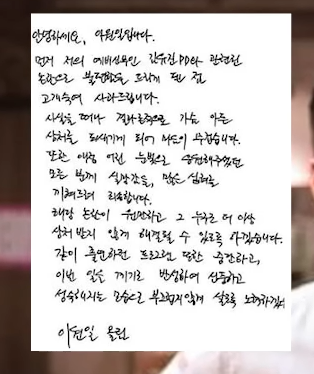 안녕하세요, 이원일입니다.
먼저 저의 예비신부인 김유진PD와 관련된
논란으로 불편함을 드리게 된 점
고개숙여 사과드립니다.
사실을 떠나 결과론적으로 가슴 아픈
상처를 되새기게 되어 마음이 무겁습니다.
또한 애정 어린 눈빛으로 응원해주셨던
모든 분께 실망감을, 많은 상처를
끼쳐드려 죄송합니다.
해당 논란이 원만하고 그 누구도 더 이상
상처 받지 않게 해결될 수 있도록 하겠습니다.
같이 출연하던 프로그램 또한 중단하고,
이번 일을 계기로 반성하여 신중하고
성숙해지는 모습으로 부끄럽지않게 살도록 노력하겠
이원일 올림